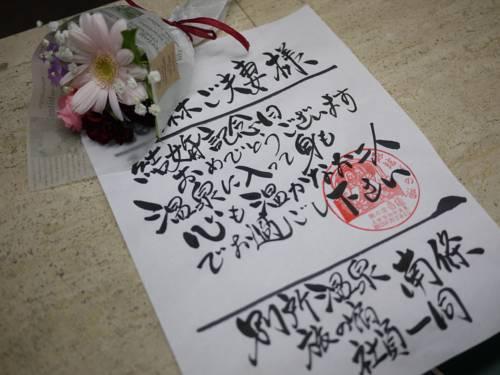 林ご夫妻様
結婚記念日
おめでとうございます
温泉に入って身も
心も温かなお二人
でお過ごし下さい
別所温泉
旅の宿 南條
社員一同